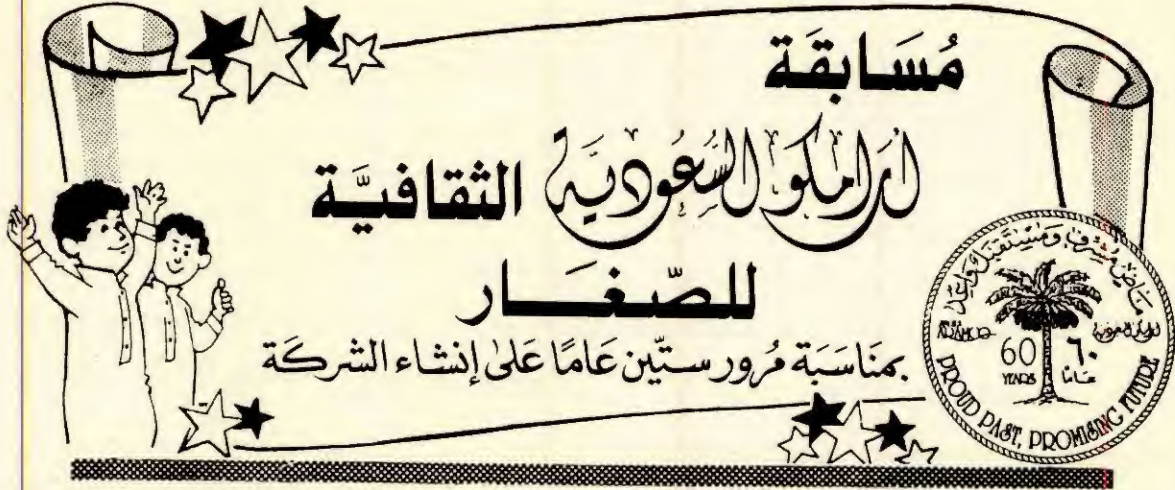 مُسَابقَة
ارامكو السعودية الثقافيَّة
للصّغــــار
بمنَاسَبَة مُرور ستّين عَامًا عَلى إنشاء الشركَة
مَاضٍ مُشرق وَمُسْتَقبَل وَاعد
ارامكو السعودية
60
YEARS
٦٠
عَامًا
PROUD PAST, PROMISING FUTURE